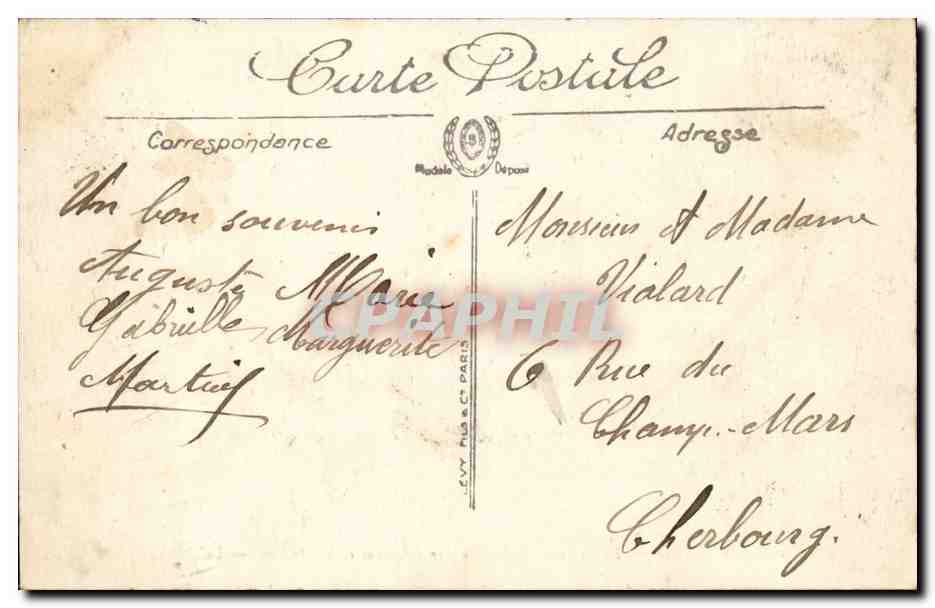 Carte Postale
Correspondance
Adresse
Modèle Déposé
Un bon souvenir
Auguste Marie
Gabrielle Marguerite
Martin
Monsieur et Madame
Violard
6 Rue du
Champ-Mars
Cherbourg.
LEVY Fils & Cie PARIS
CPAPHIL